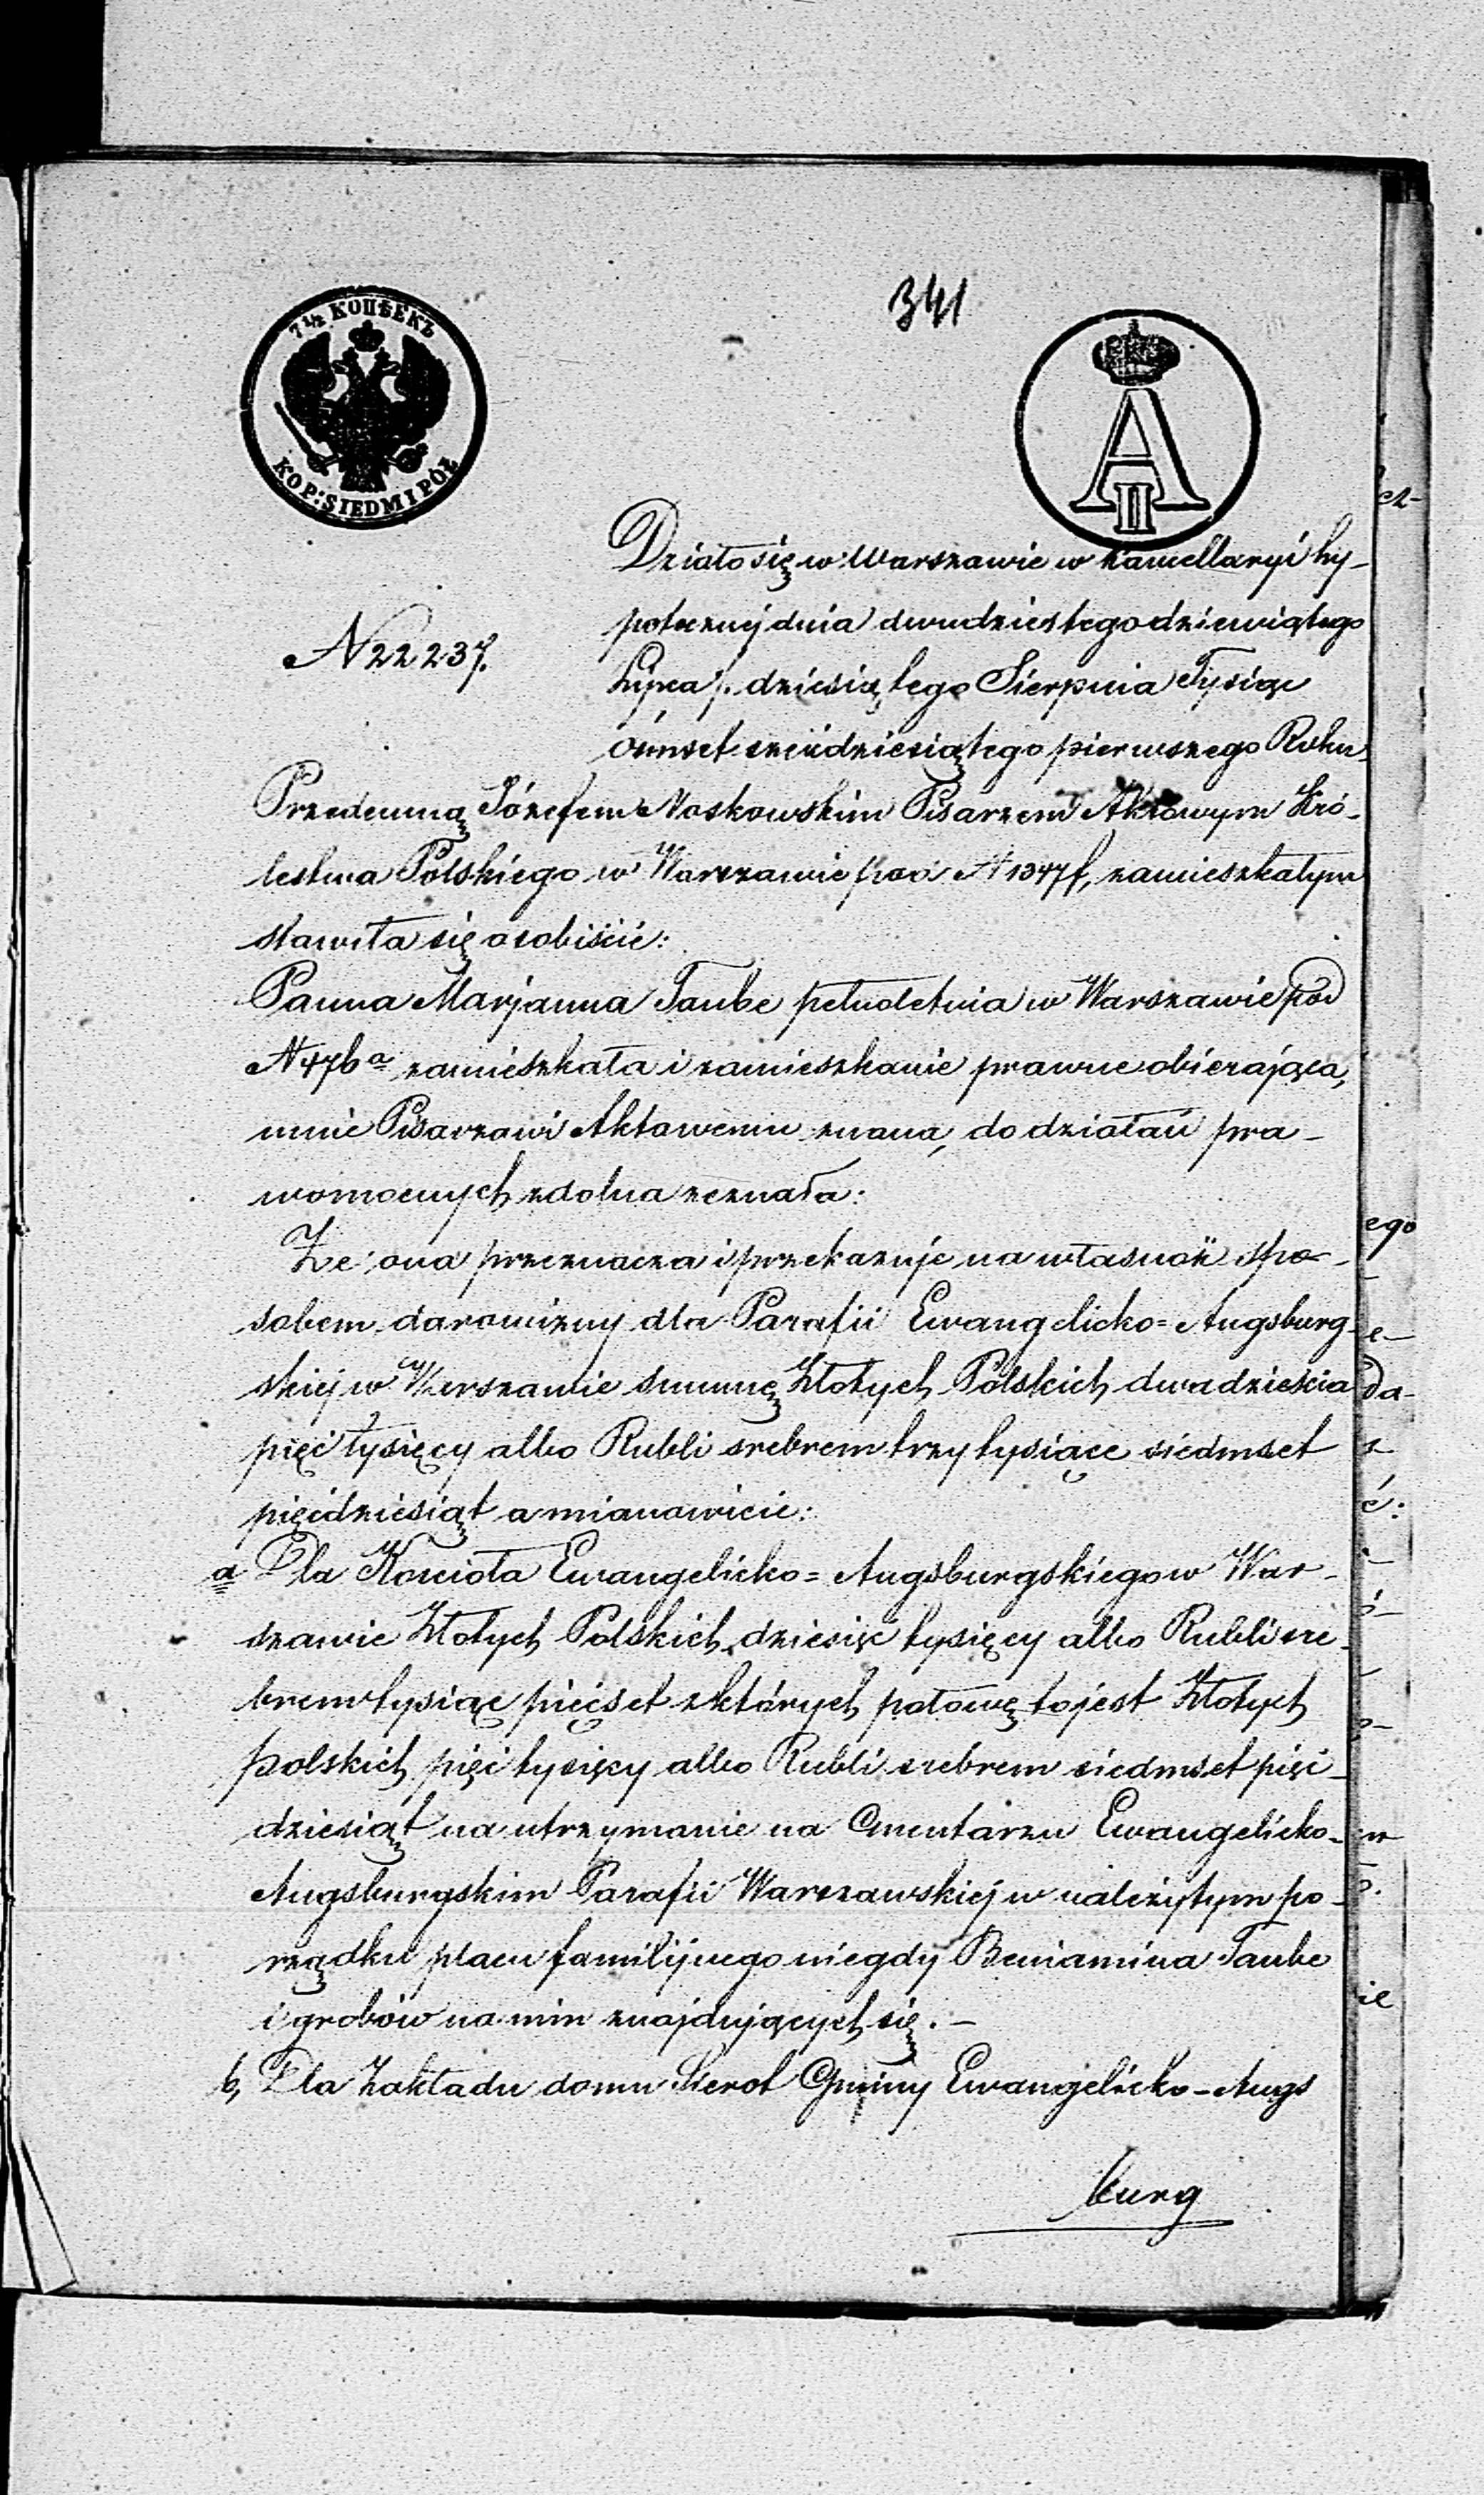 341
7 1/2 КОПѢЕКЪ
KOP: SIEDM I PÓŁ
A II
Działo się w Warszawie w Kancellaryi hy-
potecznej dnia dwudziestego dziewiątego
N 22237.
Lipca /. dziesiątego Sierpnia Tysiąc
ośmset sześćdziesiątego pierwszego Roku.
Przedemną Józefem Noskowskim Pisarzem Aktowym Kró-
lestwa Polskiego w Warszawie pod N 1347f, zamieszkałym
stawiła się osobiście:
Panna Marjanna Taube pełnoletnia w Warszawie pod
N 476 a zamieszkała i zamieszkanie prawne obierająca,
mnie Pisarzowi Aktowemu znana, do działań pra-
womocnych zdolna zeznała:
Że ona przeznacza i przekazuje na własność spo-
sobem darowizny dla Parafii Ewangelicko=Augsburg-
skiej w Warszawie summę Złotych Polskich dwadzieścia
pięć tysięcy albo Rubli srebrem trzy tysiące siedmset
pięćdziesiąt a mianowicie:
a Dla Kościoła Ewangelicko=Augsburgskiego w War-
szawie Złotych Polskich dziesięć tysięcy albo Rubli sre-
brem tysiąc pięćset z których połowę to jest Złotych
polskich pięć tysięcy albo Rubli srebrem siedmset pięć-
dziesiąt na utrzymanie na Cmentarzu Ewangelicko-
Augsburgskim Parafii Warszawskiej w należytym po-
rządku placu familijnego niegdy Beniamina Taube
i grobów na nim znajdujących się. -
b, Dla Zakładu domu Sierot Gminy Ewangelicko-Augs
burg